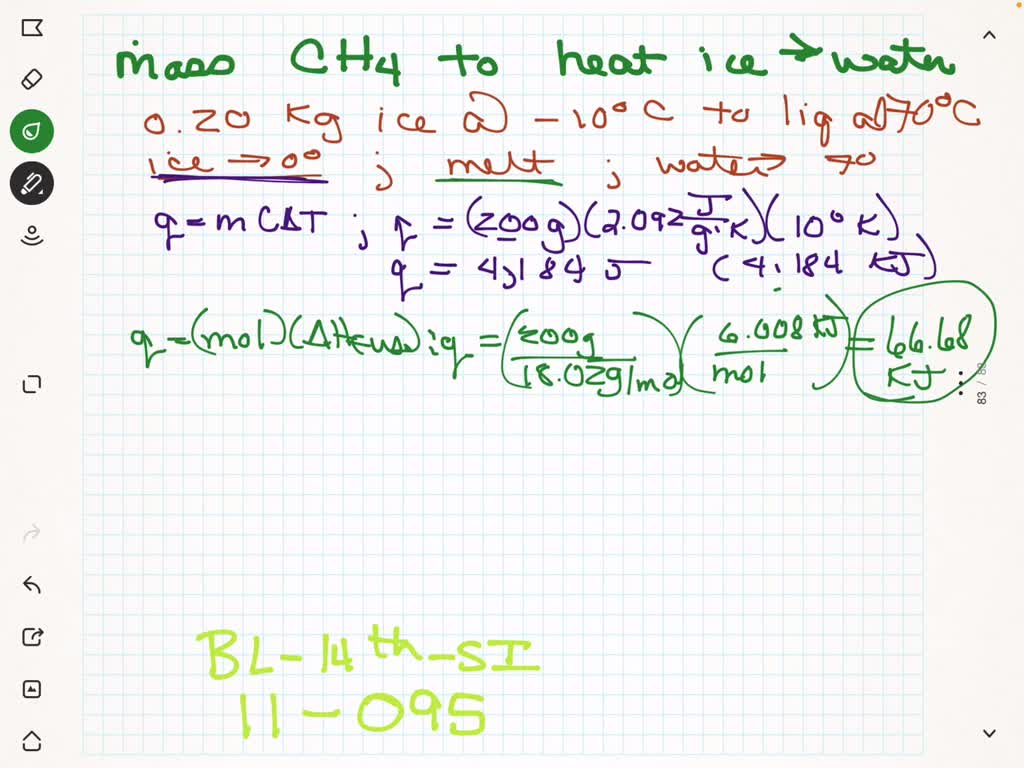 mass CH4 to heat ice → water
0.20 Kg ice @ -10°C to liq @ 70°C
ice → 0° ; melt ; water → 70
q = m C ΔT ; q = (200g)(2.092 J/g·K)(10° K)
q = 4,184 J (4.184 KJ)
q = (mol)(ΔHfus) ; q = (200g / 18.02g/mol)(6.008 KJ / mol) = 66.68 KJ
83 / 88
BL-14th-SI
11-095